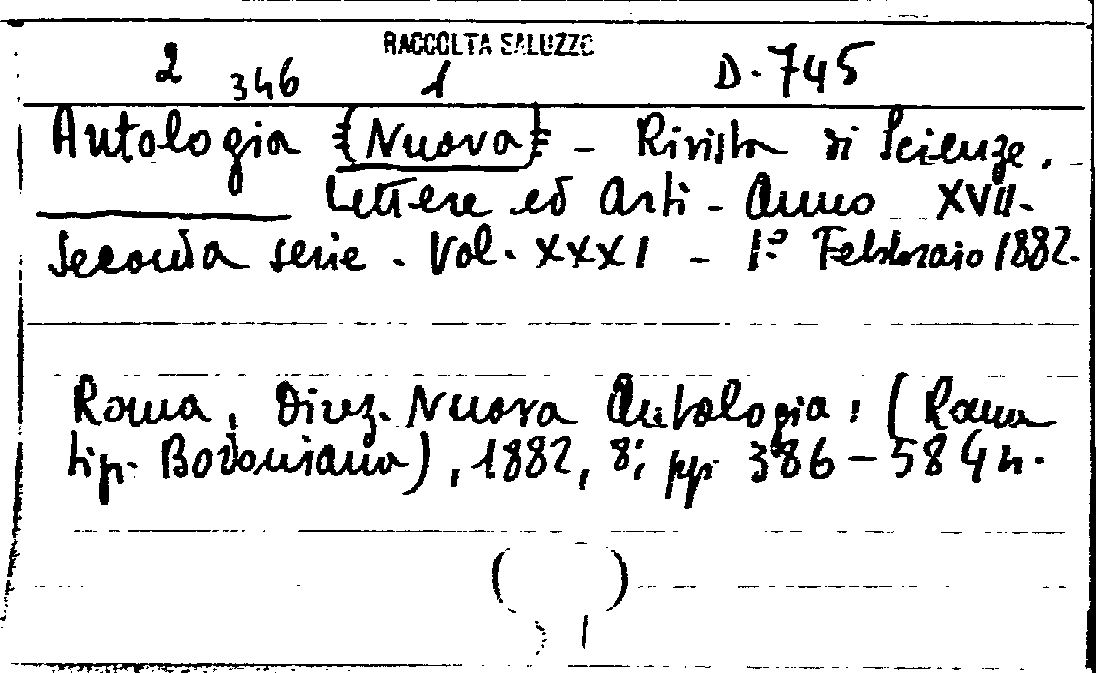 RACCOLTA SALUZZO
2 346 1 D. 745
Antologia (Nuova) - Rivista di Scienze.
Lettere ed Arti - Anno XVII.
Seconda serie. Vol. XXXI - 1.º Febbraio 1882.
Roma, Direz. Nuova Antologia, (Roma
tip. Bodoniana), 1882, 8°, pp. 386-584 n.
( )